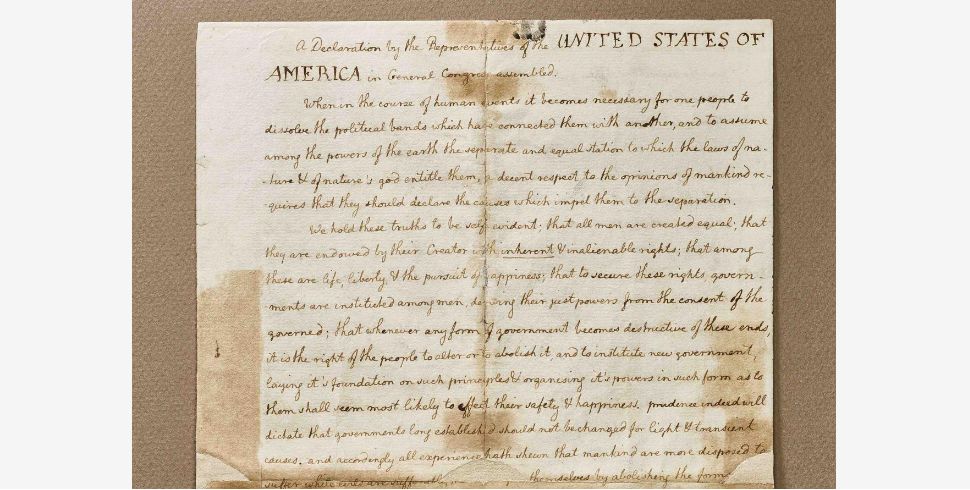 A Declaration by the Representatives of the UNITED STATES OF
AMERICA in General Congress assembled.
When in the course of human events it becomes necessary for one people to
dissolve the political bands which have connected them with another, and to assume
among the powers of the earth the separate and equal station to which the laws of na-
-ture & of nature's god entitle them, a decent respect to the opinions of mankind re-
-quires that they should declare the causes which impel them to the separation.
We hold these truths to be self evident; that all men are created equal; that
they are endowed by their Creator with inherent & inalienable rights; that among
these are life, liberty, & the pursuit of happiness; that to secure these rights, govern-
-ments are instituted among men, deriving their just powers from the consent of the
governed; that whenever any form of government becomes destructive of these ends,
it is the right of the people to alter or to abolish it, and to institute new government,
laying it's foundation on such principles & organising it's powers in such form as to
them shall seem most likely to effect their safety & happiness. prudence indeed will
dictate that governments long established should not be changed for light & transient
causes. and accordingly all experience hath shewn that mankind are more disposed to
suffer while evils are themselves by abolishing the form